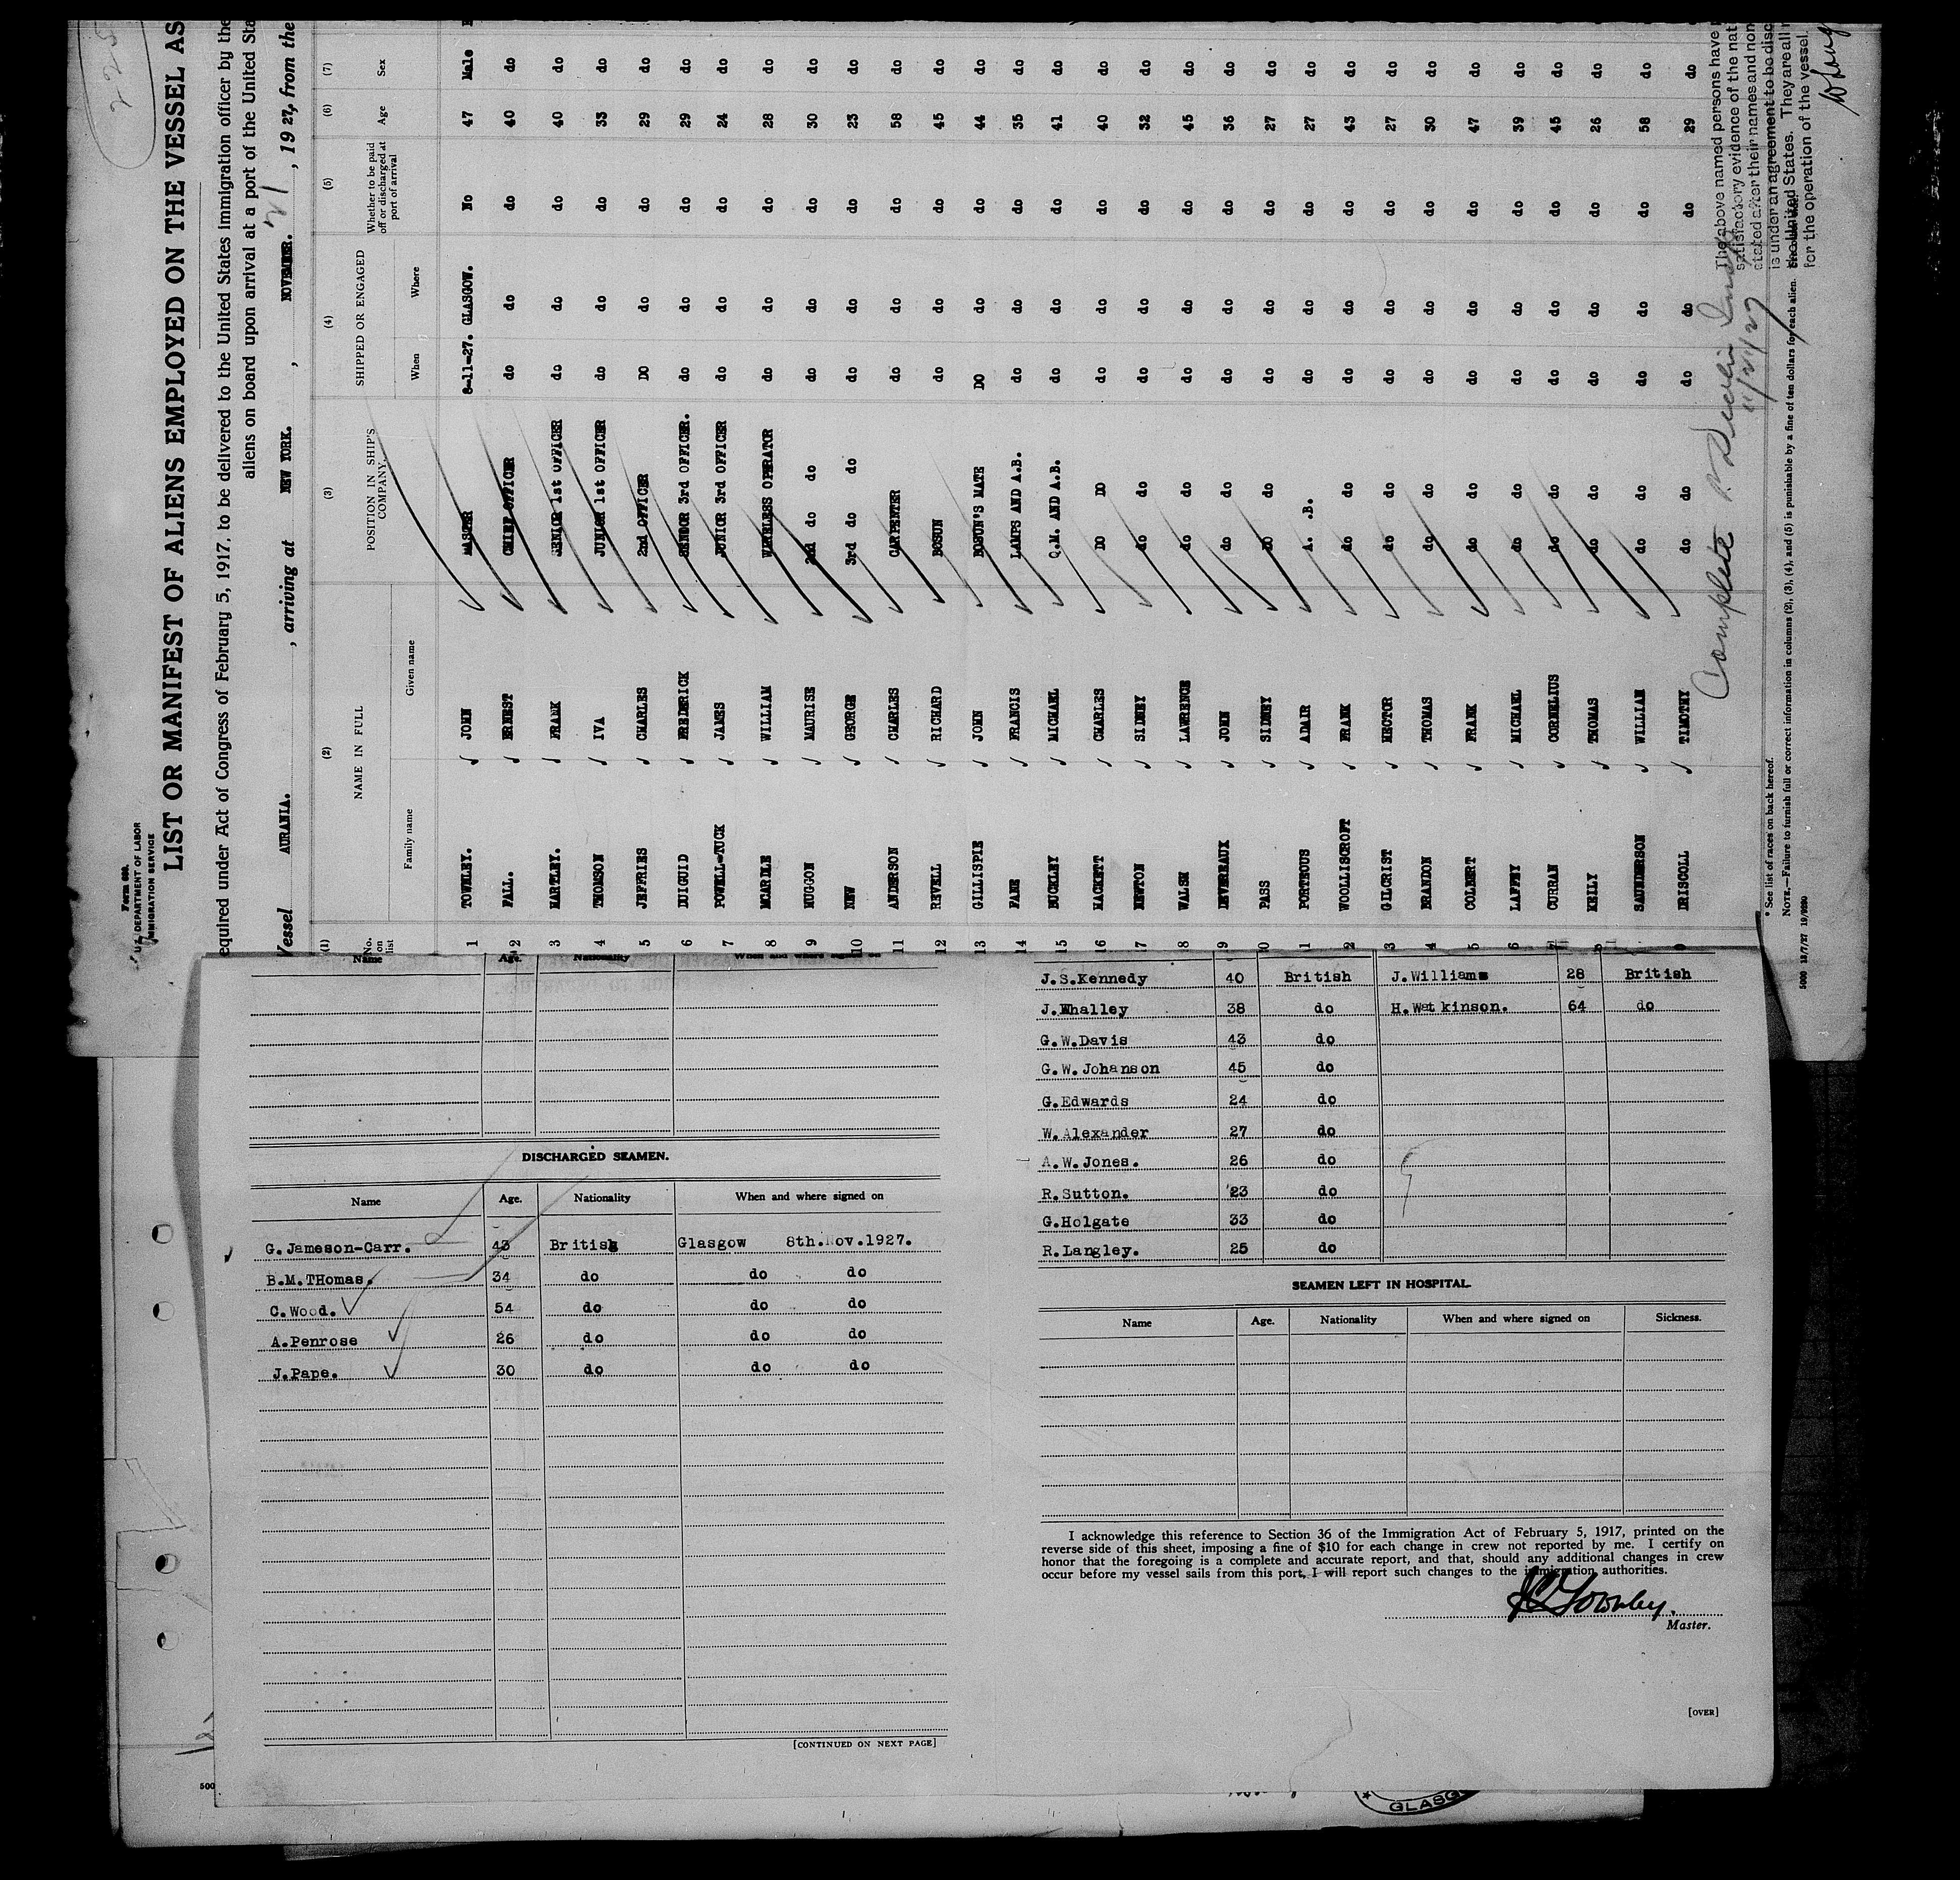 Form 680.
U.S. DEPARTMENT OF LABOR
IMMIGRATION SERVICE
LIST OR MANIFEST OF ALIENS EMPLOYED ON THE VESSEL AS
equired under Act of Congress of February 5, 1917, to be delivered to the United States immigration officer by the
aliens on board upon arrival at a port of the United Sta
Vessel AURANIA. , arriving at NEW YORK. , NOVEMBER. 21 , 1927, from the
(1) (2) (3) (4) (5) (6) (7)
No. on list NAME IN FULL POSITION IN SHIP'S COMPANY. SHIPPED OR ENGAGED Whether to be paid off or discharged at port of arrival Age Sex
Family name Given name When Where
1 TOWNLEY. JOHN MASTER 8-11-27. GLASGOW. No 47 Male
2 FALL. ERNEST CHIEF OFFICER do do do 40 do
3 HARTLEY. FRANK SENIOR 1st OFFICER do do do 40 do
4 THOMSON IVA JUNIOR 1st OFFICER do do do 33 do
5 JEFFRIES CHARLES 2nd OFFICER DO do do 29 do
6 DUIGUID FREDERICK SENIOR 3rd OFFICER. do do do 29 do
7 POWELL-TUCK JAMES JUNIOR 3rd OFFICER do do do 24 do
8 MCARDLE WILLIAM WIRELESS OPERATOR do do do 28 do
9 MUGGON MAURISE 2nd do do do do do 30 do
10 NEW GEORGE 3rd do do do do do 23 do
11 ANDERSON CHARLES CARPENTER do do do 58 do
12 REVELL RICHARD BOSUN do do do 45 do
13 GILLISPIE JOHN BOSUN'S MATE DO do do 44 do
14 FANE FRANCIS LAMPS AND A.B. do do do 35 do
15 BUCKLEY MICHAEL Q.M. AND A.B. do do do 41 do
16 HACKETT CHARLES DO DO do do do 40 do
17 NEWTON SIDNEY do do do do do 32 do
18 WALSH LAWRENCE do do do do do 45 do
9 DEVEREAUX JOHN do do do do do 36 do
0 PASS SIDNEY DO do do do do 27 do
1 PORTEOUS ADAIR A. .B. do do do 27 do
2 WOOLLISCROFT FRANK do do do do do 43 do
3 GILCRIST HECTOR do do do do do 27 do
4 BRANDON THOMAS do do do do do 30 do
5 COLBERT FRANK do do do do do 47 do
6 LAFFEY MICHAEL do do do do do 39 do
7 CURRAN CORNELIUS do do do do do 45 do
8 KEILY THOMAS do do do do do 26 do
SAUNDERSON WILLIAM do do do do do 58 do
DRISCOLL TIMOTHY do do do do do 29 do
Complete
11/21/27
The above named persons have
satisfactory evidence of the nat
stated after their names and non
is under an agreement to be disc
the United States. They are all
for the operation of the vessel.
* See list of races on back hereof.
NOTE.—Failure to furnish full or correct information in columns (2), (3), (4), and (5) is punishable by a fine of ten dollars for each alien.
Name Age. Nationality When and where signed on
DISCHARGED SEAMEN.
Name Age. Nationality When and where signed on
G. Jameson-Carr. 43 British Glasgow 8th.Nov.1927.
B.M.THomas. 34 do do do
C.Wood. 54 do do do
A.Penrose 26 do do do
J.Pape. 30 do do do
[CONTINUED ON NEXT PAGE]
J.S.Kennedy 40 British J.Williams 28 British
J.Whalley 38 do H.Watkinson. 64 do
G.W.Davis 43 do
G.W.Johanson 45 do
G.Edwards 24 do
W.Alexander 27 do
A.W.Jones. 26 do
R.Sutton. 23 do
G.Holgate 33 do
R.Langley. 25 do
SEAMEN LEFT IN HOSPITAL.
Name Age. Nationality When and where signed on Sickness.
I acknowledge this reference to Section 36 of the Immigration Act of February 5, 1917, printed on the
reverse side of this sheet, imposing a fine of $10 for each change in crew not reported by me. I certify on
honor that the foregoing is a complete and accurate report, and that, should any additional changes in crew
occur before my vessel sails from this port, I will report such changes to the immigration authorities.
Townley.
Master.
[OVER]
500
GLASG